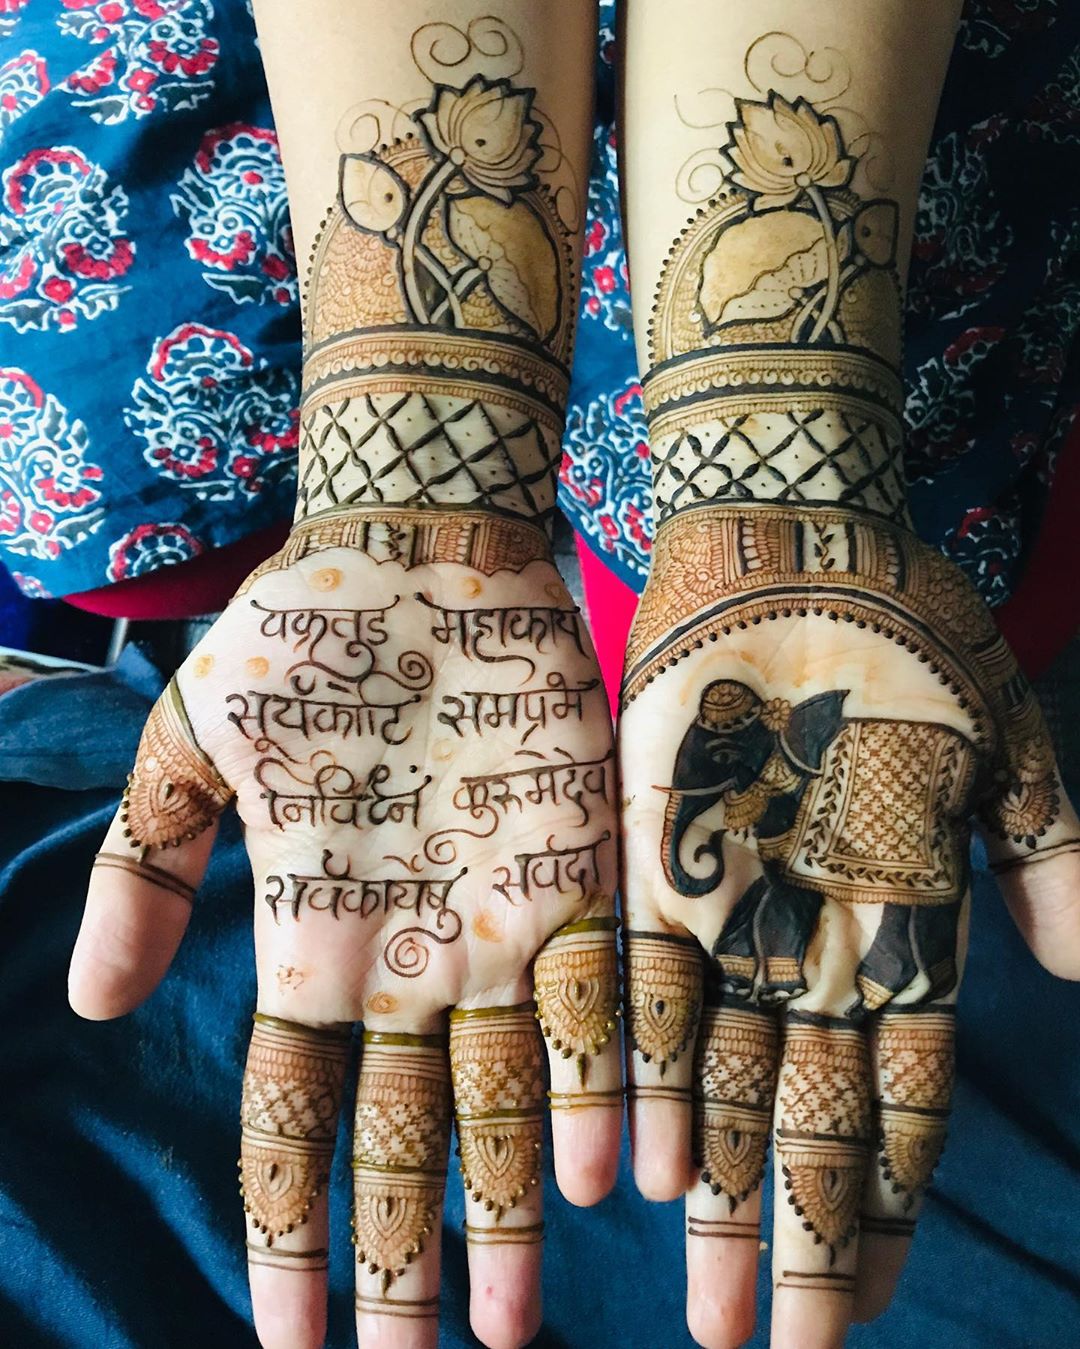 वक्रतुंड महाकाय
सूर्यकोटि समप्रभ
निर्विघ्नं कुरूमेदेव
सर्वकार्येषु सर्वदा